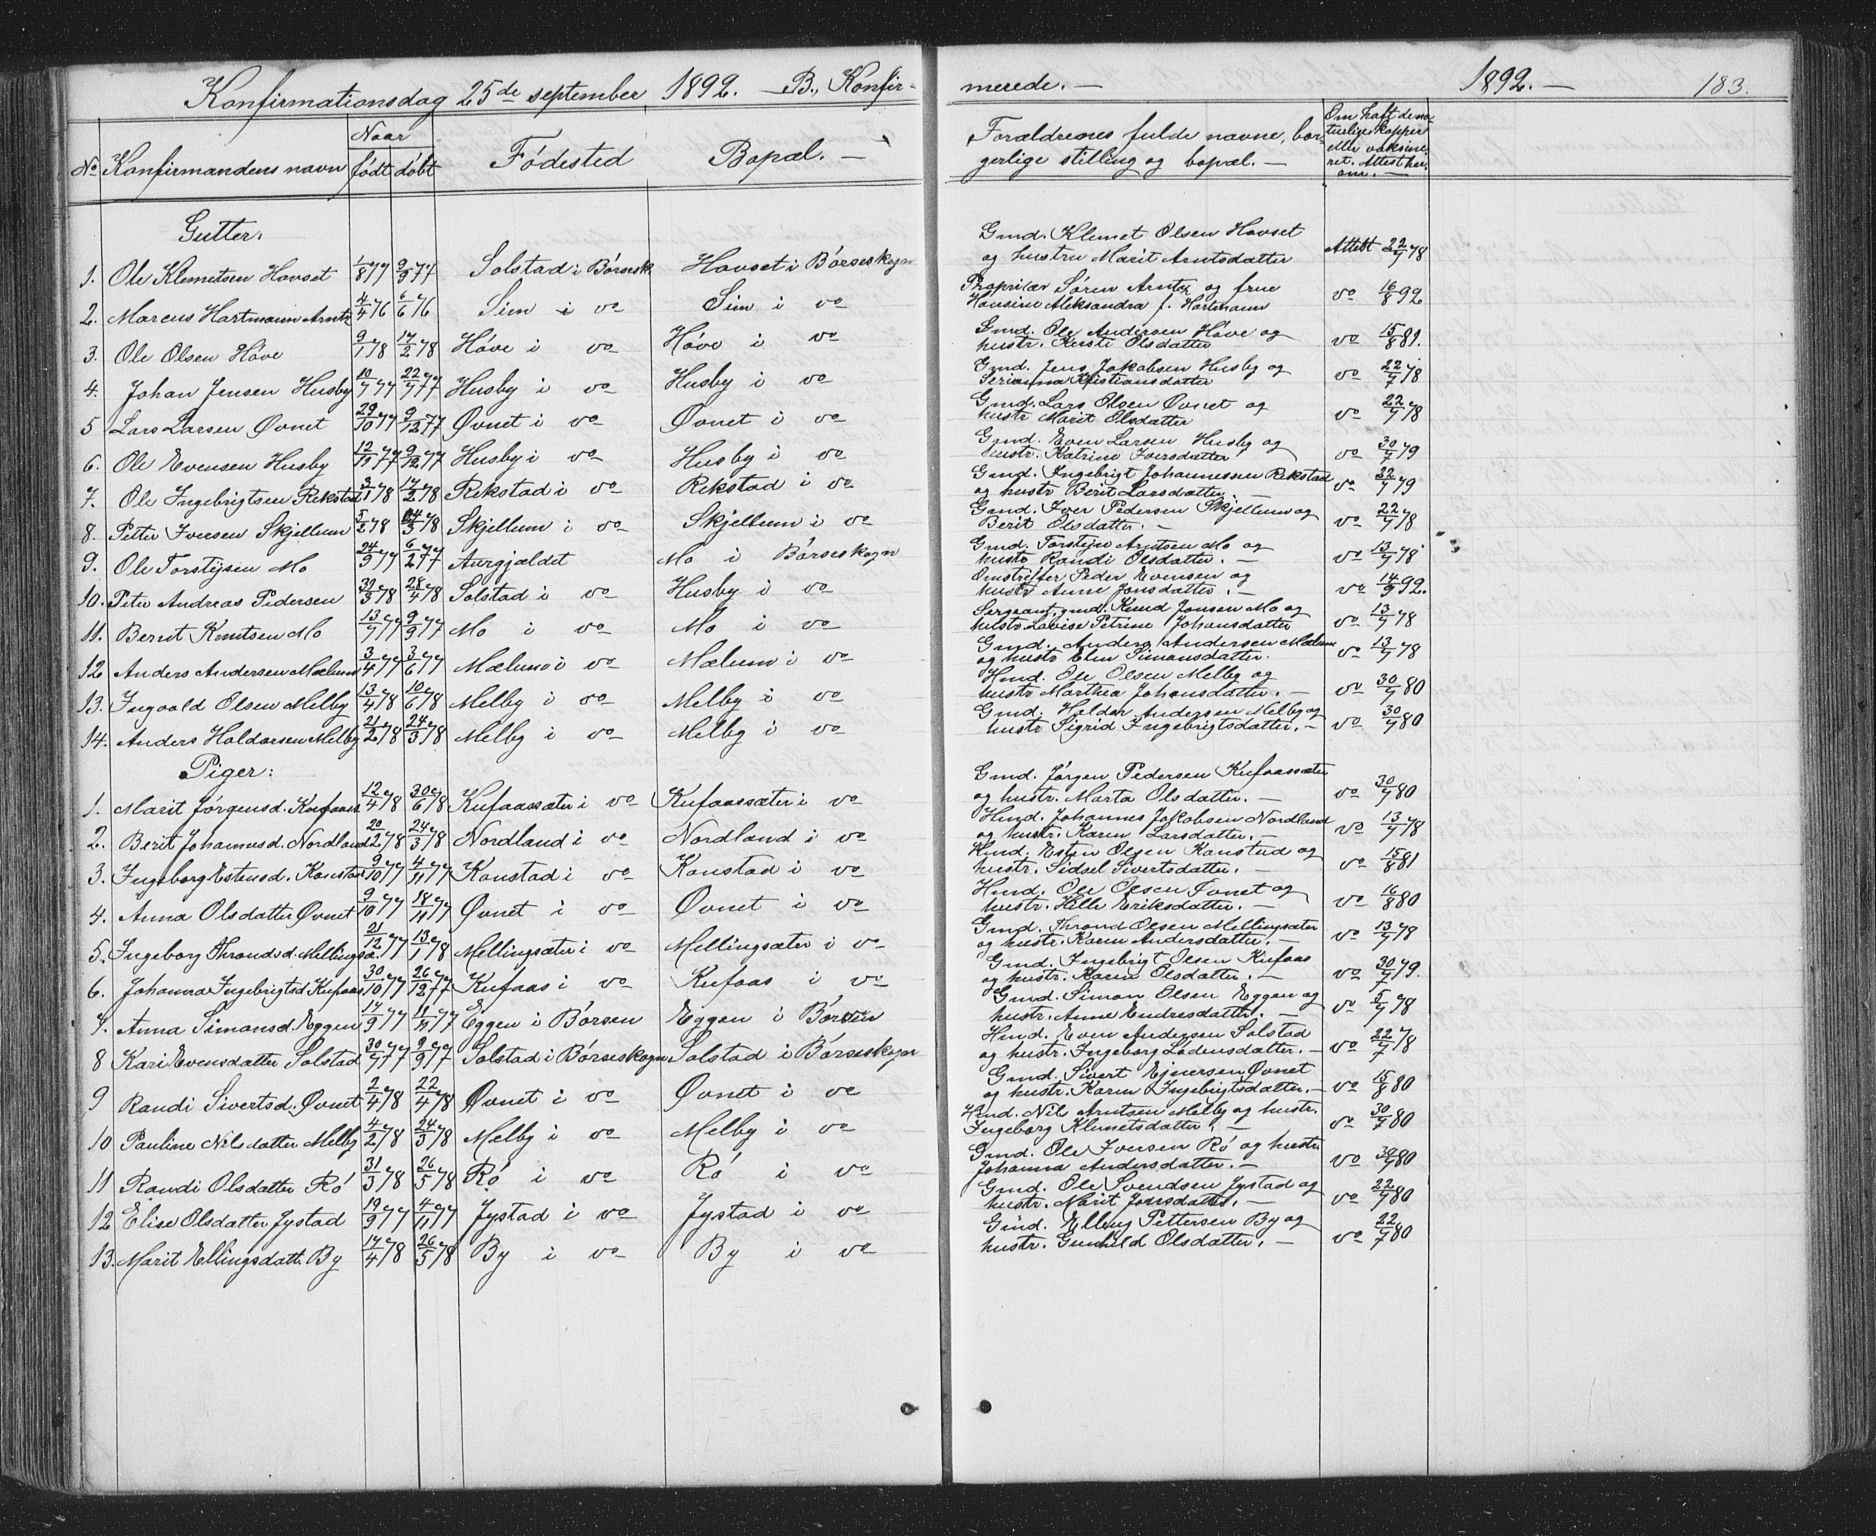 Konfirmationsdag 25de september 1892. — B., Konfir-
merede. — 1892. — 183.
No Konfirmandens navn Naar født døbt Fødested Bopæl. —
Forældrenes fulde navne, bor-
gerlige stilling og bopæl. —
Om haft de na-
turlige kopper
eller vaksine-
ret. Attest her-
om. —
Gutter:
1. Ole Klemetsen Havset 1/8 77 9/9 77 Solstad i Børsesk. Havset i Børseskogn
Gmd. Klemet Olsen Havset
og hustru Marit Arntsdatter Attest 22/7 78
2. Marcus Hartmann Arntz 4/4 76 6/6 76 Sim i do Sim i do
Proprietær Søren Arntz og frue
Hansine Aleksandra f. Hartmann do 16/8 92
3. Ole Olsen Høve 9/1 78 17/2 78 Høve i do Høve i do
Gmd. Ole Andersen Høve og
hustr. Kerste Olsdatter do 15/8 81.
4. Johan Jensen Husby 10/7 77 22/7 77 Husby i do Husby i do
Gmd. Jens Jakobsen Husby og
Serianna Kristiansdatter do 22/7 78
5 Lars Larsen Øvnet 29/10 77 9/12 77 Øvnet i do Øvnet i do
Gmd. Lars Olsen Øvnet og
hustr Marit Olsdatter do 22/7 78
6. Ole Evensen Husby 12/11 77 9/12 77 Husby i do Husby i do
Gmd. Even Larsen Husby og
hustr. Katrine Iversdatter do 30/7 79
7. Ole Ingebrigtsen Rekstad 3/1 78 17/2 78 Rekstad i do Rekstad i do
Gmd. Ingebrigt Johannessen Rekstad
og hustr Berit Larsdatter. — do 22/7 79
8. Petter Iversen Skjellum 5/2 78 24/3 78 Skjellum i do Skjellum i do
Gmd. Iver Pedersen Skjellum og
Berit Olsdatter. — do 22/7 78
9. Ole Torstejsen Mo 24/9 77 6/2 77 Aurgjældet Mo i Børseskogn
Gmd. Torstejn Arntsen Mo og
hustr Randi Olsdatter. — do 13/7 78
10. Peter Andreas Pedersen 30/3 78 28/4 78 Solstad i do Husby i do
Omstreifer Peder Evensen og
hustr Anne Jonsdatter. — do 14/9 92.
11. Bernt Knutsen Mo 13/7 77 9/9 77 Mo i do Mo i do
Sergeant, gmd. Knud Jonsen Mo og
hustr Lovise Petrine Johansdatter do 13/7 78
12 Anders Andersen Mælum 3/4 77 3/6 77 Mælum i do Mælum i do
Gmd. Anders Andersen Mælum
og hustr Elen Simonsdatter. do 13/7 78
13. Ingvald Olsen Melby 13/4 78 10/6 78 Melby i do Melby i do
Hmd. Ole Olsen Melby og
hustr Marthea Johansdatter. — do 30/7 80
14. Anders Haldorsen Melby 21/2 78 24/3 78 Melby i do Melby i do
Gmd. Haldor Andersen Melby og
hustr Sigrid Ingebrigtsdatter. — do 30/7 80
Piger:
1. Marit Jørgensd. Kufaas 12/4 78 30/6 78 Kufaassæter i do Kufaassæter i do
Gmd. Jørgen Pedersen Kufaassæter
og hustr. Marta Olsdatter. — do 30/7 80
2. Berit Johannesd. Nordland 20/2 78 24/3 78 Nordland i do Nordland i do
Hmd. Johannes Jakobsen Nordland
og hustr. Karen Larsdatter. — do 13/7 78
3. Ingeborg Estensd. Konstad 9/10 77 4/11 77 Konstad i do Konstad i do
Hmd. Esten Olsen Konstad og
hustr. Sidsel Sivertsdatter. — do 15/8 81
4. Anna Olsdatter Øvnet 9/10 77 18/11 77 Øvnet i do Øvnet i do
Hmd. Ole Olsen Øvnet og
hustr. Helle Eriksdatter. — do 16/8 80
5. Ingeborg Thronds d. Mellingsæ. 21/12 77 13/1 78 Mellingsæter i do Mellingsæter i do
Gmd. Thrond Olsen Mellingsæter
og hustr. Karen Andersdatter. — do 13/7 78
6. Johanna Ingebrigtsd Kufaas 30/10 77 26/12 77 Kufaas i do Kufaas i do
Gmd. Ingebrigt Olsen Kufaas
og hustr. Karen Olsdatter. — do 30/7 79.
7. Anna Simonsd. Eggen 17/9 77 11/11 77 Eggen i Børsen Eggen i Børsen
Gmd. Simon Olsen Eggen og
hustr. Anne Endresdatter. — do 5/7 78
8 Kari Evensdatter Solstad 30/7 77 9/9 77 Solstad i Børseskogn Solstad i Børseskogn
Hmd. Even Andersen Solstad
og hustr. Ingeborg Lodensdatter. — do 22/7 78
9 Randi Sivertsd. Øvnet 2/4 78 22/4 78 Øvnet i do Øvnet i do
Gmd. Sivert Ejnersen Øvnet
og hustr. Karen Ingebrigtsdatter. — do 15/8 80
10 Pauline Nilsdatter Melby 4/2 78 24/3 78 Melby i do Melby i do
Hmd. Nils Arntsen Melby og hustr.
Ingeborg Klemetsdatter. — do 30/7 80
11 Randi Olsdatter Rø 31/3 78 26/5 78 Rø i do Rø i do
Gmd. Ole Iversen Rø og hustr
Johanna Andersdatter. — do 30/7 80
12 Elise Olsdatter Jystad 19/9 77 4/11 77 Jystad i do Jystad i do
Gmd. Ole Svendsen Jystad og
hustr. Marit Jonsdatter. — do 22/7 80
13. Marit Ellingsdatt. By 17/4 78 26/5 78 By i do By i do
Gmd. Elling Pettersen By og
hustr. Gunhild Olsdatter. — do 22/7 80